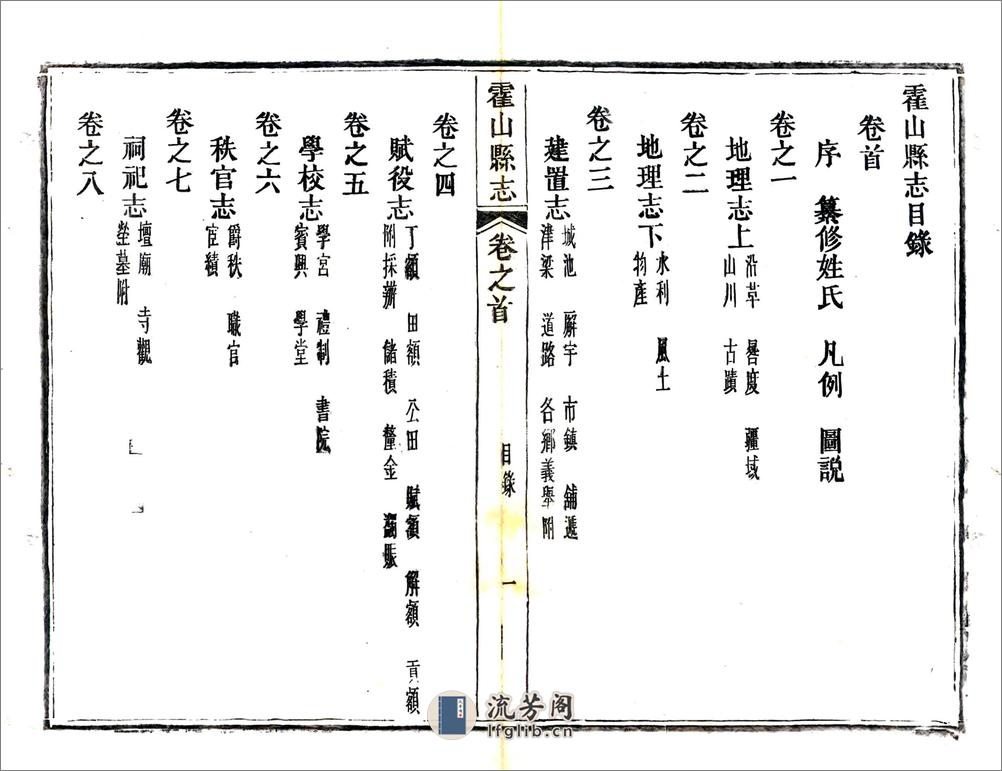 霍山縣志目錄
卷首
序 纂修姓氏 凡例 圖説
卷之一
地理志上 沿革 晷度 疆域
山川 古蹟
卷之二
地理志下 水利 風土
物產
卷之三
建置志 城池 廨宇 市鎮 舖遞
津梁 道路 各鄉義舉附
霍山縣志 卷之首 目錄 一
卷之四
賦役志 丁額 田額 公田 賦額 解額 貢額
附採辦 儲積 釐金 蠲賑
卷之五
學校志 學宮 禮制 書院
賓興 學堂
卷之六
秩官志 爵秩 職官
宦績
卷之七
祠祀志 壇廟 寺觀
塋墓附
卷之八
流芳阁
lfglib.cn